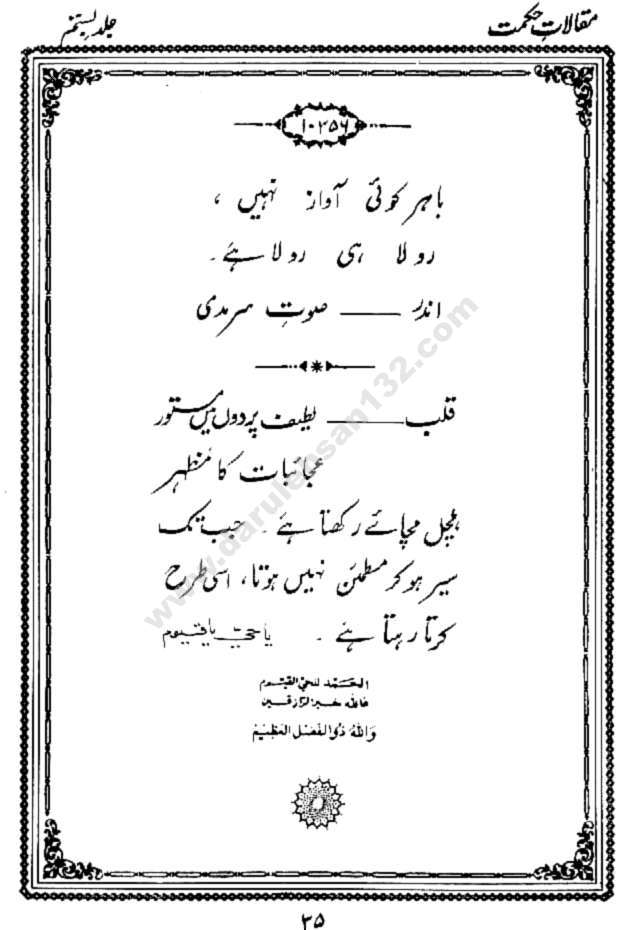 مقالاتِ حکمت
جلد بستم
۱۰۳۵۶
باہر کوئی آواز نہیں ،
رولا ہی رولا ہئے ۔
اندر —— صوتِ سرمدی
قلب —— لطیف پردوں میں مستور
عجائبات کا مُظہر
ہلچل مچائے رکھتا ہئے ۔ جب تک
سیر ہو کر مطمئن نہیں ہوتا ، اسی طرح
کرتا رہتا ہئے ۔ یا حیّ یا قیّوم
الحَمد للحیّ القیّوم
فاللہ خیر الرّازقین
وَاللهُ ذُو الفَضلِ العَظِیم
۳۵
www.darulehsan132.com